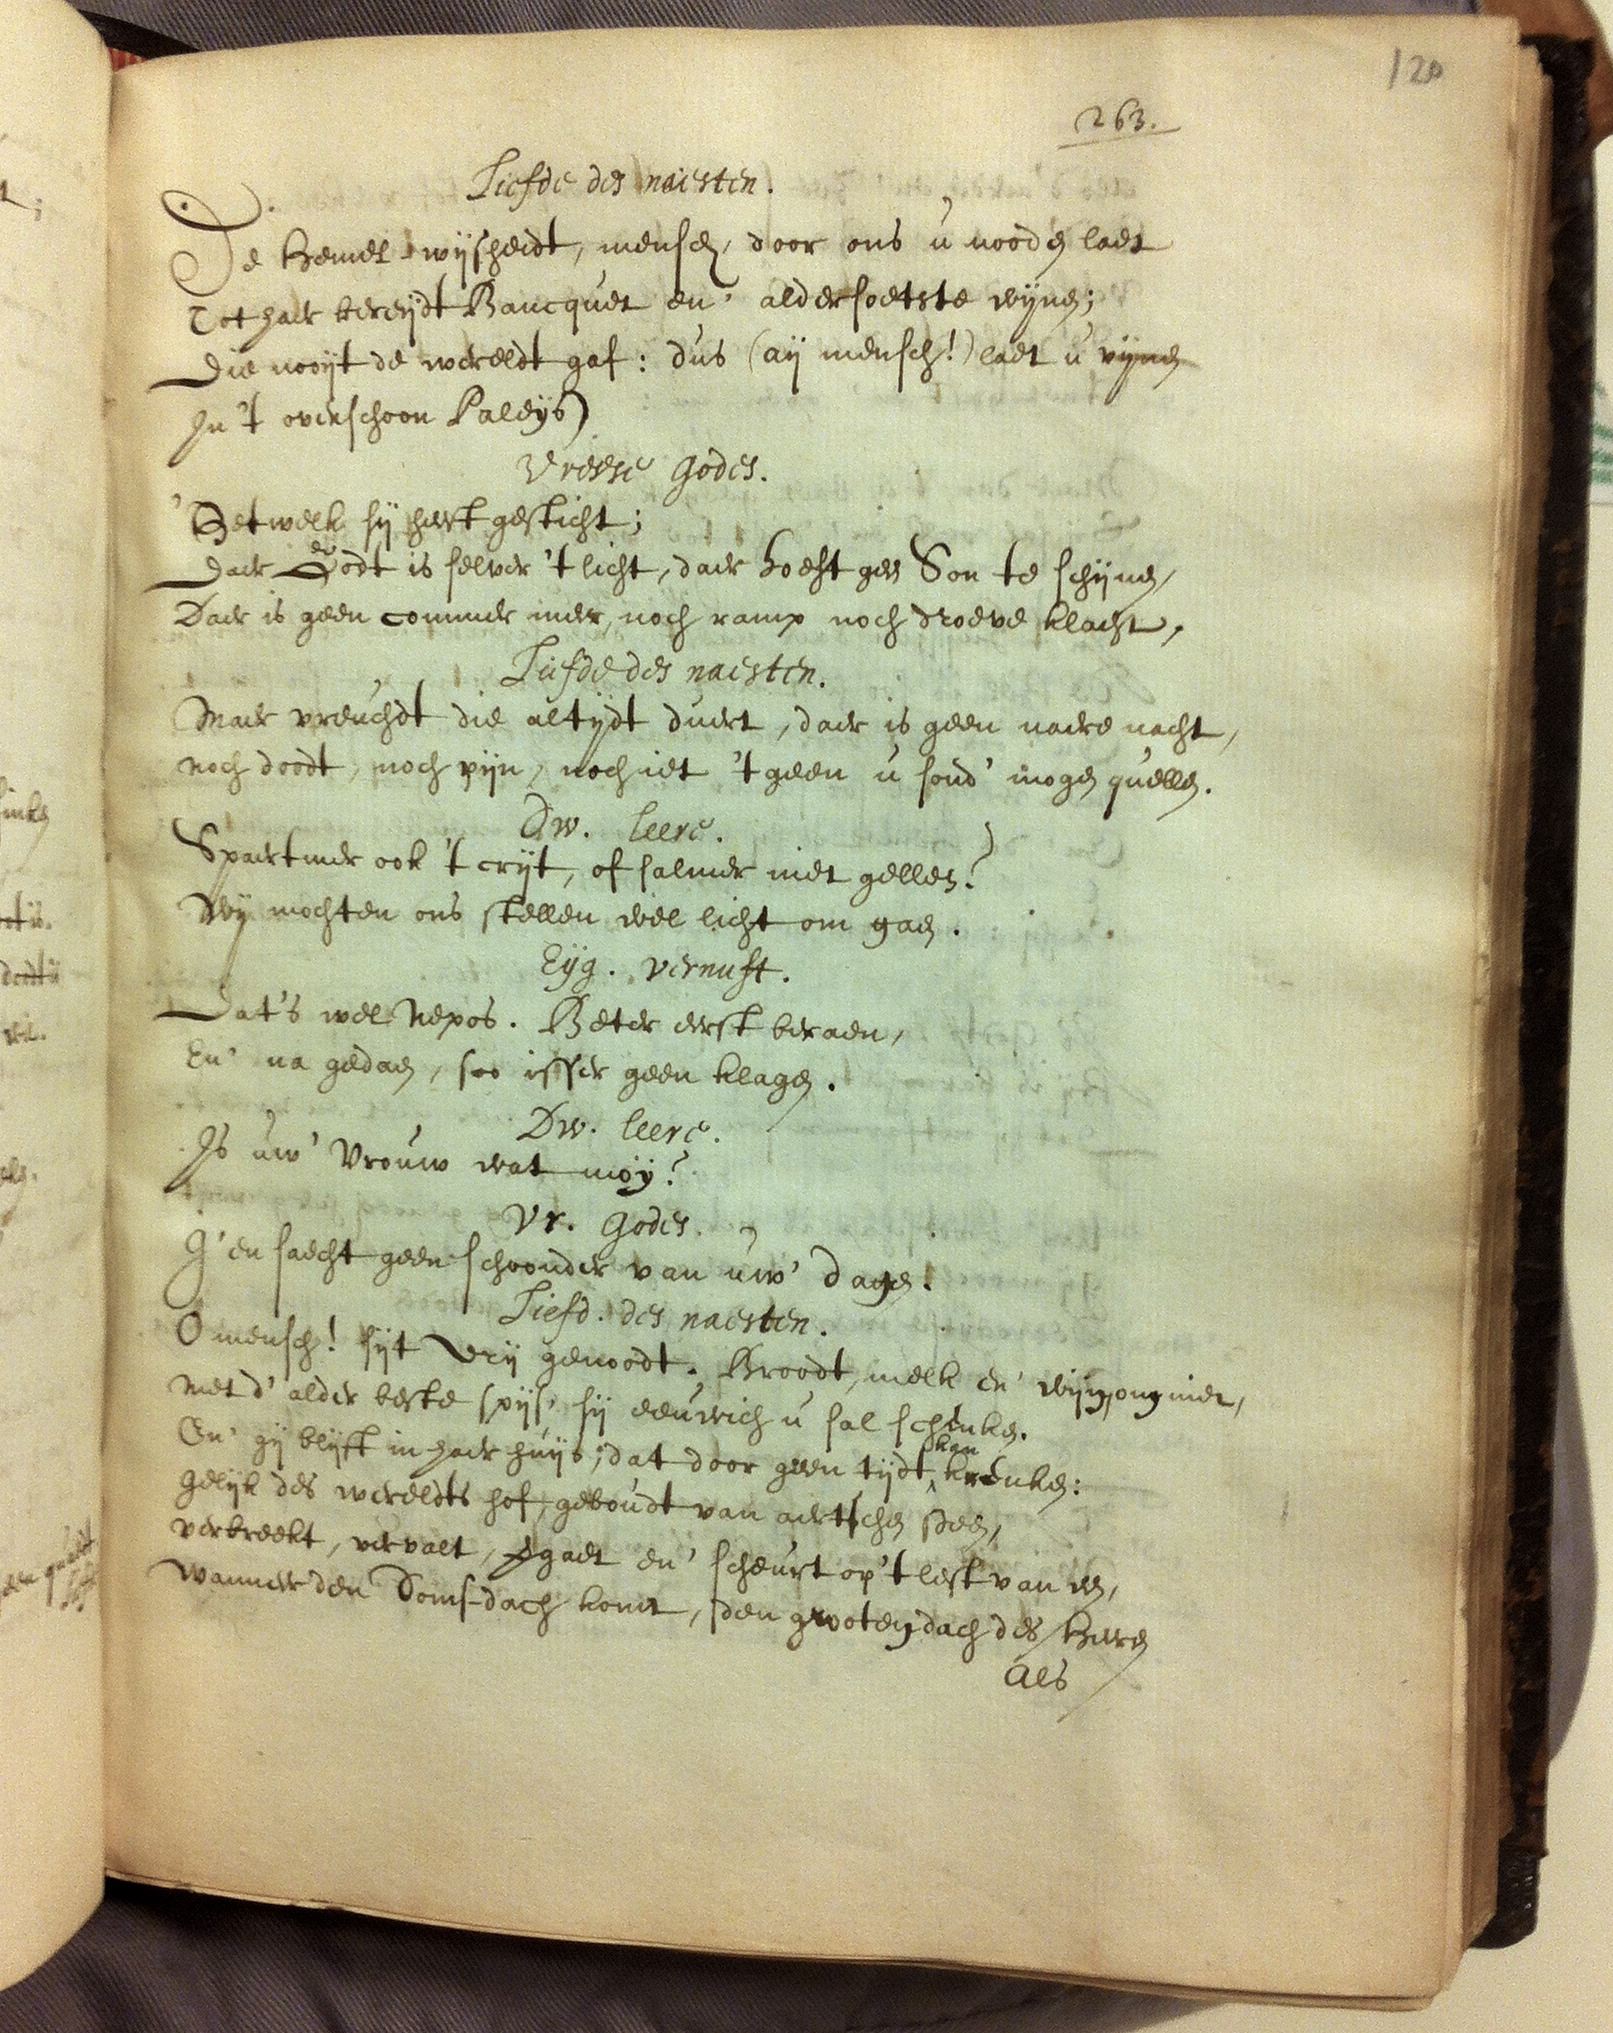 120
263.
Liefde des naesten.
De Hemel wijsheidt, mensch, door ons u nooden laet
Tot haer bereijdt Bancquet en' aldersoetste wijnen;
Die nooijt de wereldt gaf: dus (aij mensch!) laet u vijnen
In 't overschoon Paleijs
Vreese Godes.
'Hetwelk sij heeft gesticht;
Daer Godt is selver 't licht, daer hoeft geen Son te schijnen,
Daer is geen commer meer, noch ramp noch droeve klacht,
Liefde des naesten.
Maer vreuchdt die altijdt duert, daer is geen naere nacht,
noch doodt, noch pijn, noch iet 't geen u sond' mogen quellen.
Dw. leere.
Spaertmer ook 't crijt, of salmer niet gellen?
Wij mochten ons stellen wel licht om gaen.
Eijg. vernuft.
Dat's wel Nepos. Beter eerst beraen,
En' na gedaen, soo isser geen klagen.
Dw. leere.
Is uw' Vrouw wat moij?
Vr. Godes.
G'en saecht geen schoonder van uw' dagen.
Liefd. des naesten.
O mensch! sijt vrij genoodt. Broodt, melk en' wijn, ong met,
met d' alder beste spijs, sij eeuwich u sal schenken.
En' gij blijft in haer huijs; dat door geen tijdt kan krenken:
gelijk des wereldts hof, geboudt van aertschen steen,
verbreekt, vervalt, vergaet en' scheurt op 't lest van een,
wanneer den Doms-dach komt, den grooten dach des Heren
Als